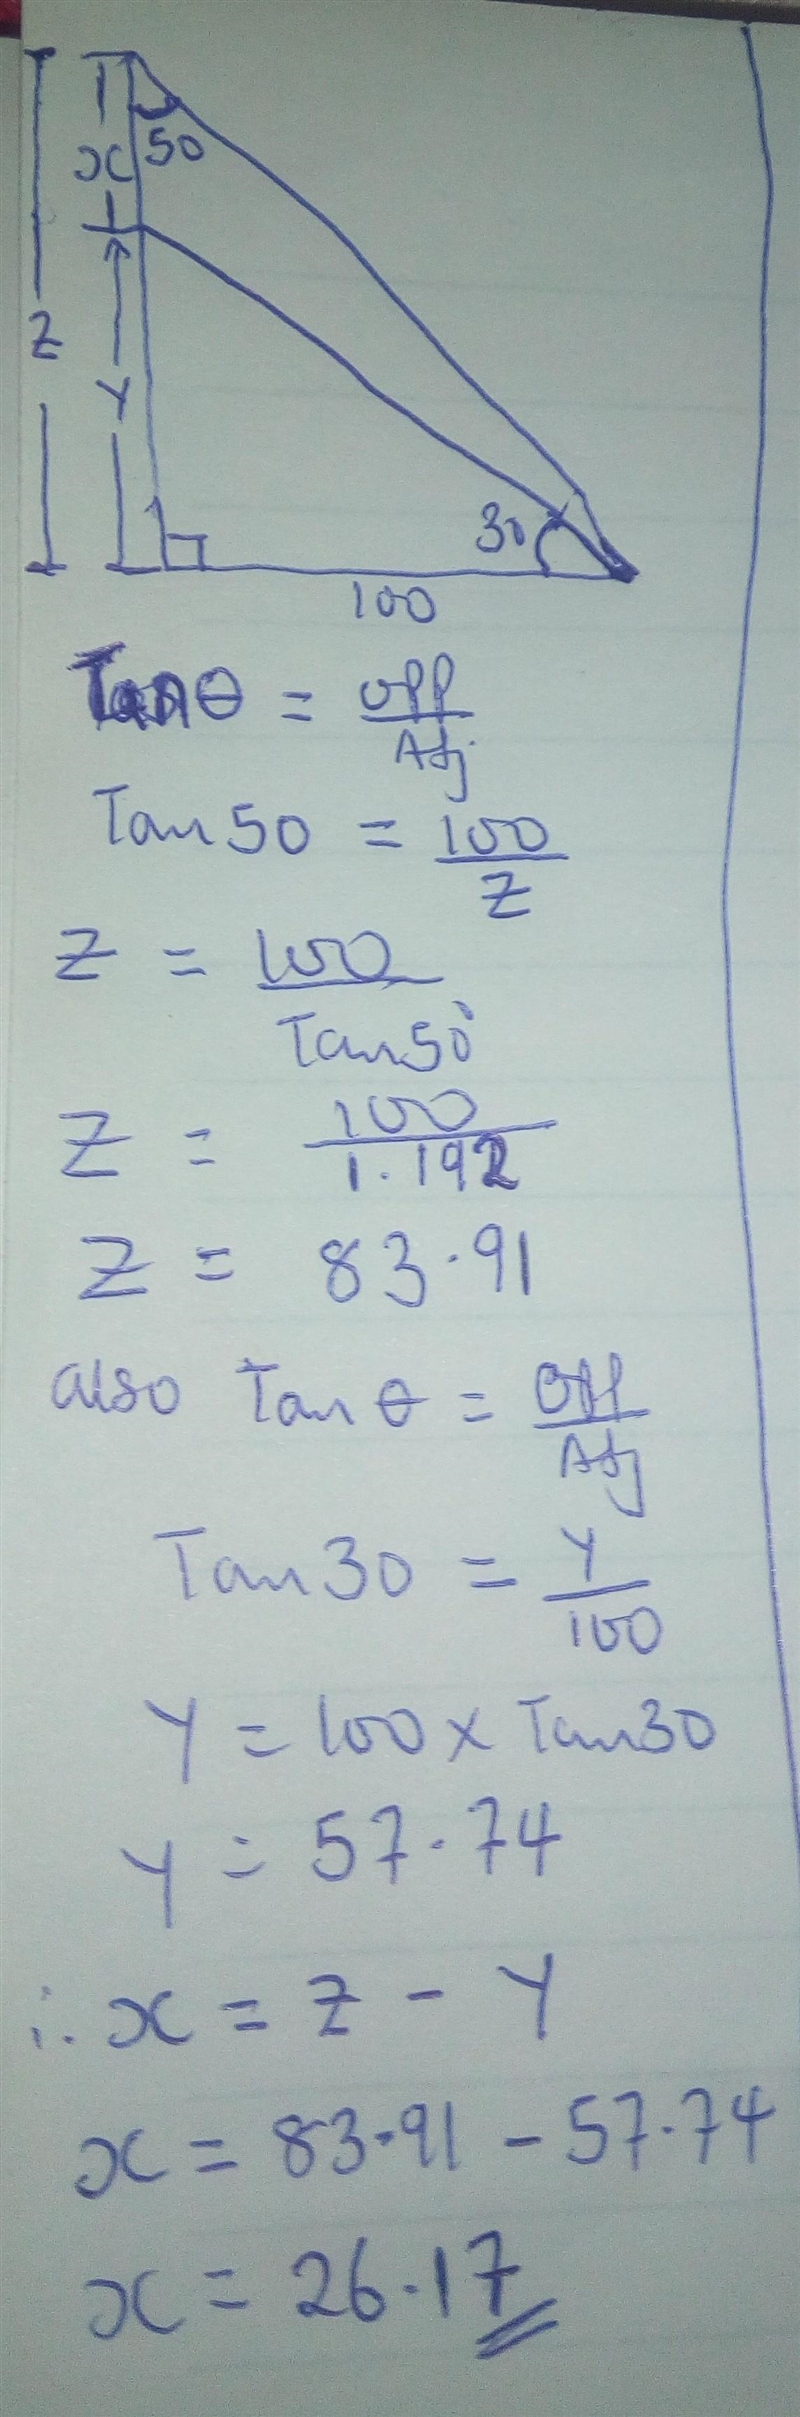 x 50
Z
Y
30
100
Tanθ = opp/Adj
Tan 50 = 100/Z
Z = 100/Tan50°
Z = 100/1.192
Z = 83.91
also Tan θ = opp/Adj
Tan 30 = Y/100
Y = 100 x Tan30
Y = 57.74
∴ x = Z - Y
x = 83.91 - 57.74
x = 26.17